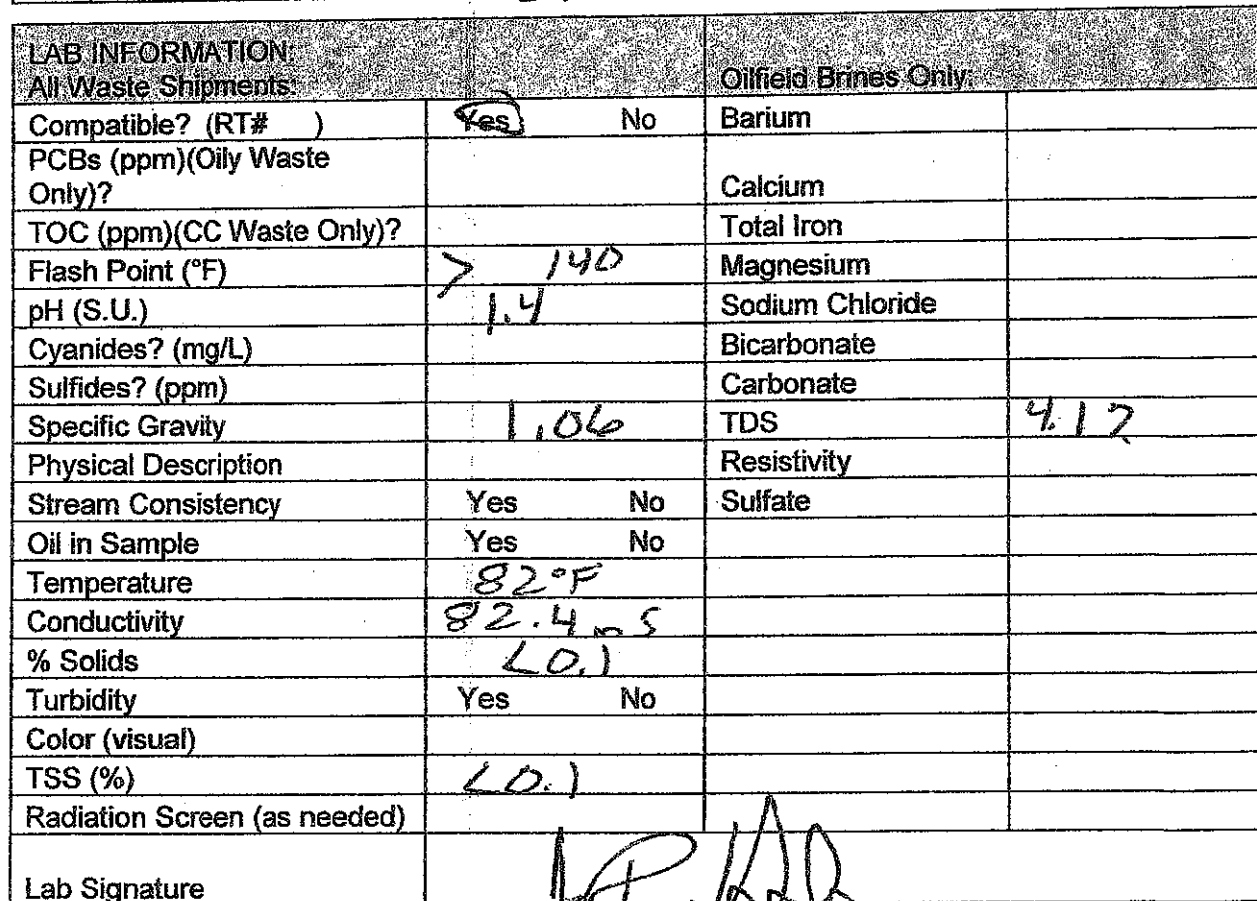 LAB INFORMATION:
All Waste Shipments: Oilfield Brines Only:
Compatible? (RT# ) Yes No Barium
PCBs (ppm)(Oily Waste
Only)? Calcium
TOC (ppm)(CC Waste Only)? Total Iron
Flash Point (°F) > 140 Magnesium
pH (S.U.) 1.4 Sodium Chloride
Cyanides? (mg/L) Bicarbonate
Sulfides? (ppm) Carbonate
Specific Gravity 1.06 TDS
Physical Description Resistivity
Stream Consistency Yes No Sulfate
Oil in Sample Yes No
Temperature 82°F
Conductivity 82.4 mS
% Solids <0.1
Turbidity Yes No
Color (visual)
TSS (%) <0.1
Radiation Screen (as needed)
Lab Signature